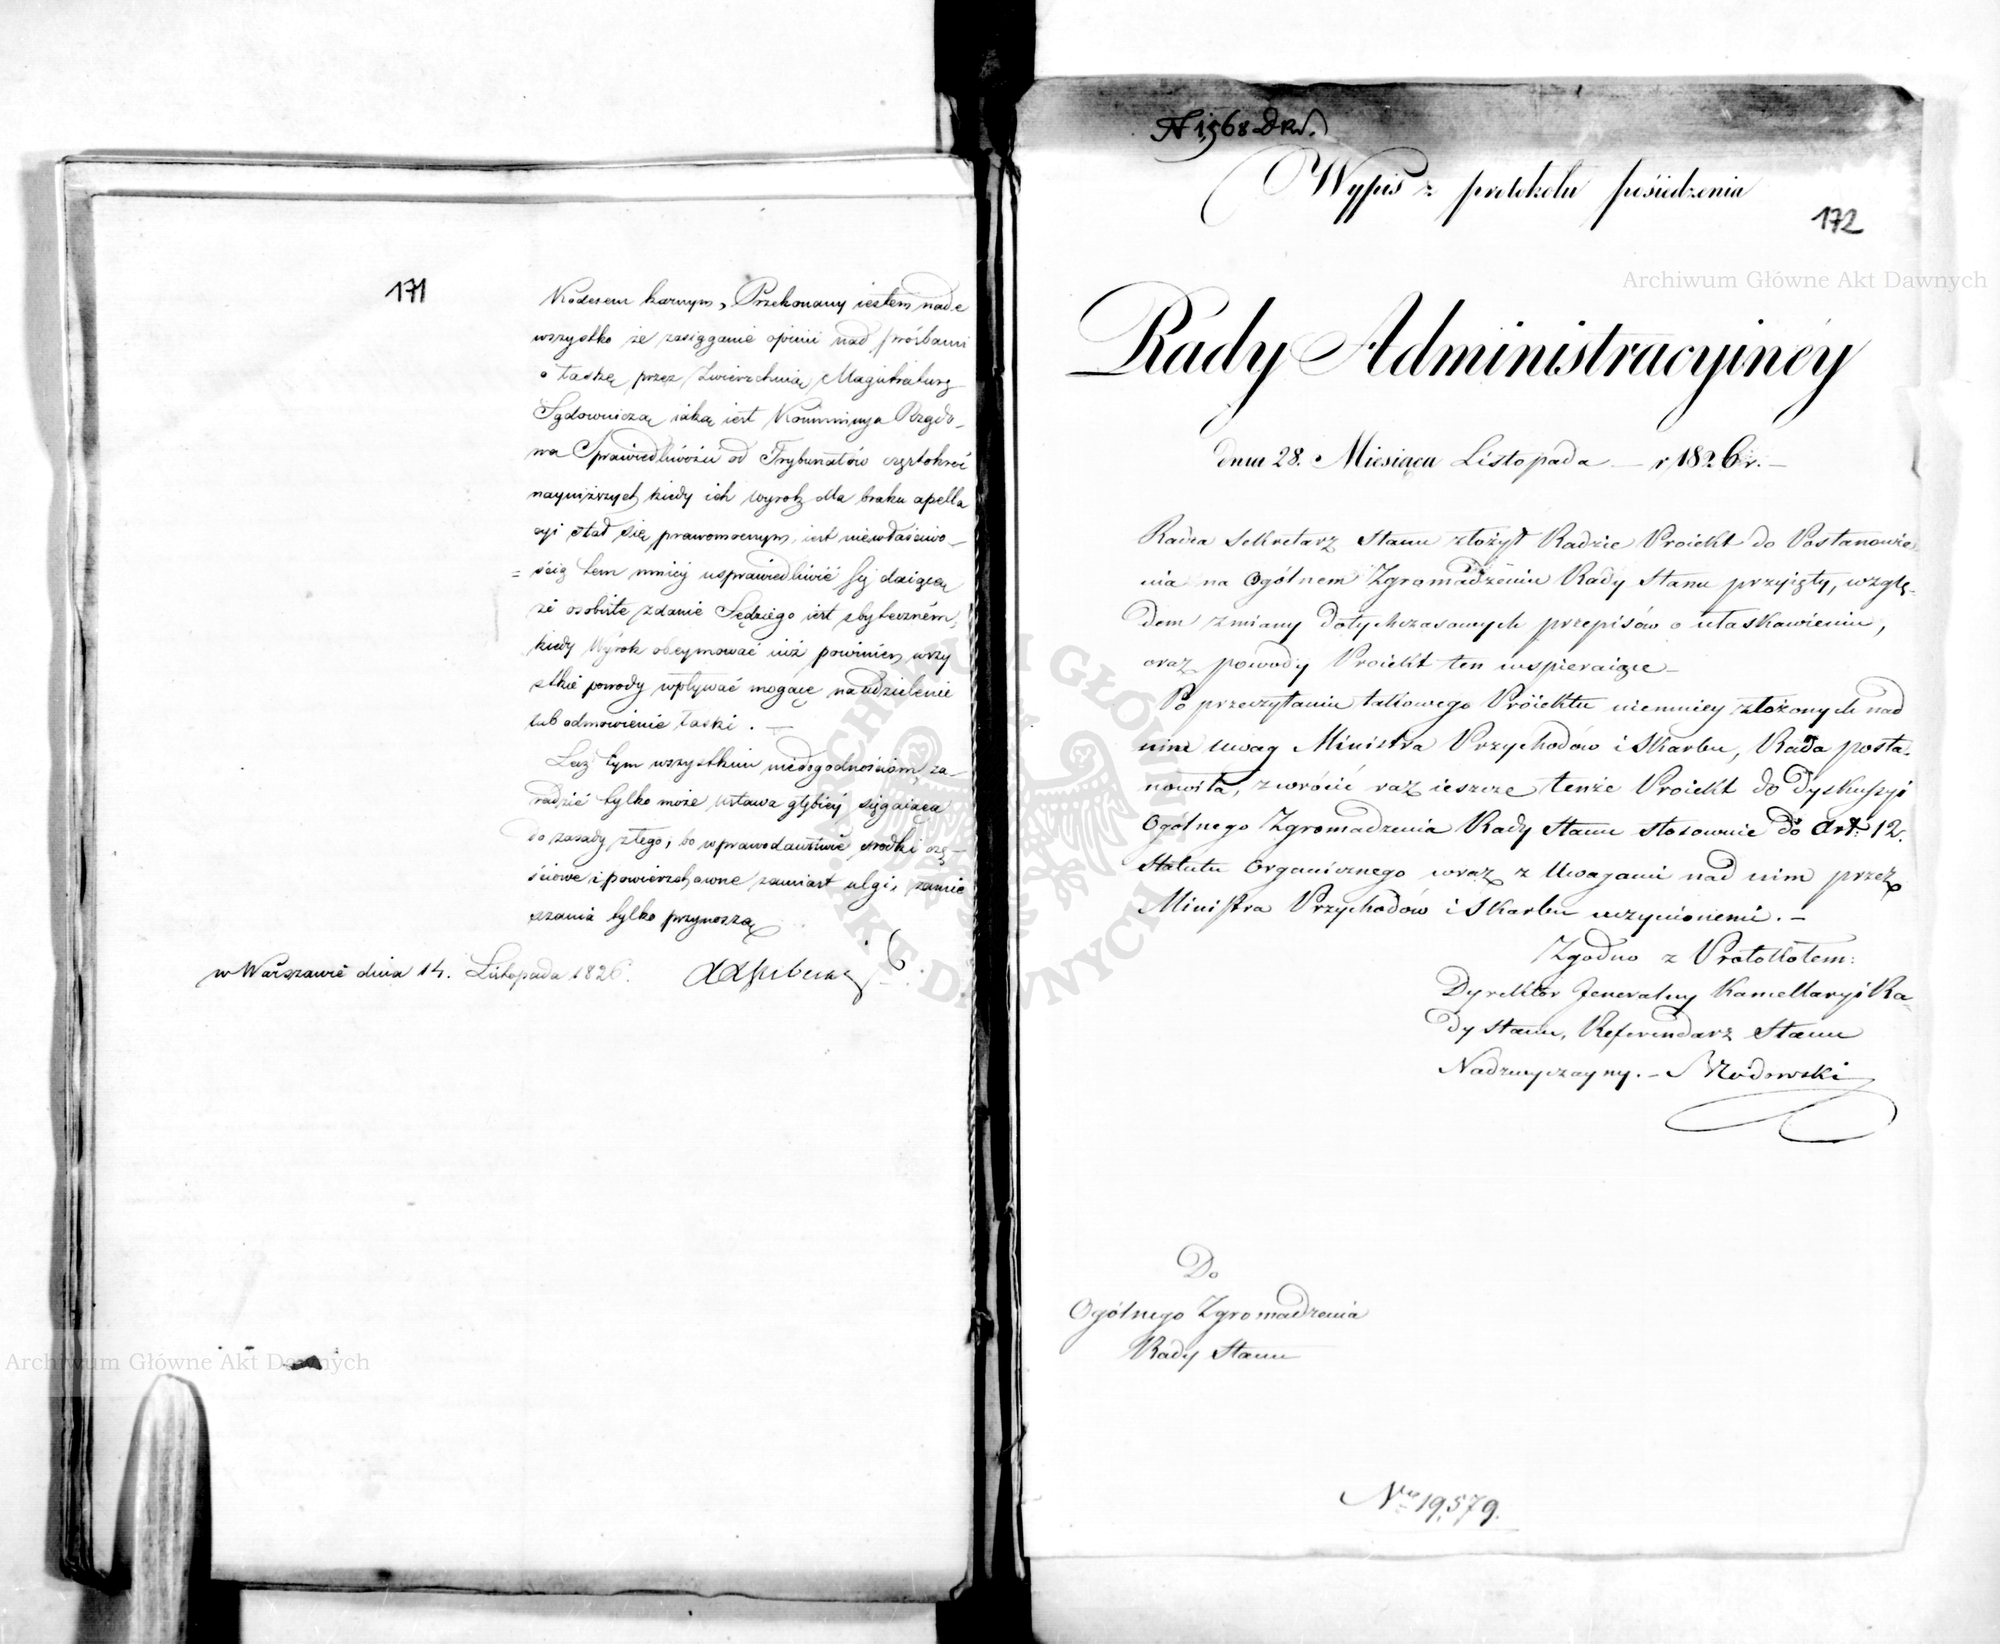 171
Kodexem karnym, Przekonany iestem nade
wszystko że zasięganie opinii nad prośbami
o łaskę przez Zwierzchnią Magistraturę
Sądowniczą iaką iest Kommissya Rządo-
wa Sprawiedliwości od Trybunałów częstokroć
nayniższych kiedy ich wyrok dla braku apella
cyi stał się prawomocnym, iest niewłaściwo-
= ścią tem mniey usprawiedliwić się daiącą
że osobiste zdanie Sędziego iest zbytecznem,
kiedy Wyrok obeymować iuż powinien wszy
stkie powody wpływać mogące na udzielenie
lub odmówienie łaski. —
Lecz tym wszystkim niedogodnościom za-
radzić tylko może ustawa głębiey sięgaiąca
do zasady złego, bo w prawodawstwie środki czę-
ściowe i powierzchowne zamiast ulgi, zamie
szania tylko przynoszą
w Warszawie dnia 14. Listopada 1826.
N 1,568 D.R.S.
Wypis z protokołu posiedzenia
172
Archiwum Główne Akt Dawnych
Rady Administracyinéy
dnia 28. Miesiąca Listopada — r 1826 r. —
Radca Sekretarz Stanu złożył Radzie Proiekt do Postanowie-
nia na Ogólnem Zgromadzeniu Rady Stanu przyięty, wzglę-
dem zmiany dotychczasowych przepisów o ułaskawieniu,
oraz powody Proiekt ten wspieraiące —
Po przeczytaniu takowego Proiektu niemniey złożonych nad
nim uwag Ministra Przychodów i Skarbu, Rada posta-
nowiła, zwrócić raz ieszcze tenże Proiekt do dyskussyi
Ogólnego Zgromadzenia Rady Stanu stosownie do Art: 12.
Statutu Organicznego wraz z Uwagami nad nim przez
Ministra Przychodów i Skarbu uczynionemi. —
Zgodno z Protokołem:
Dyrektor Jeneralny Kancellaryi Ra-
dy Stanu, Referendarz Stanu
Nadzwyczayny. —
Do
Ogólnego Zgromadzenia
Rady Stanu
Archiwum Główne Akt Dawnych
ARCHIWUM GŁÓWNE AKT DAWNYCH
Nro 19,579.